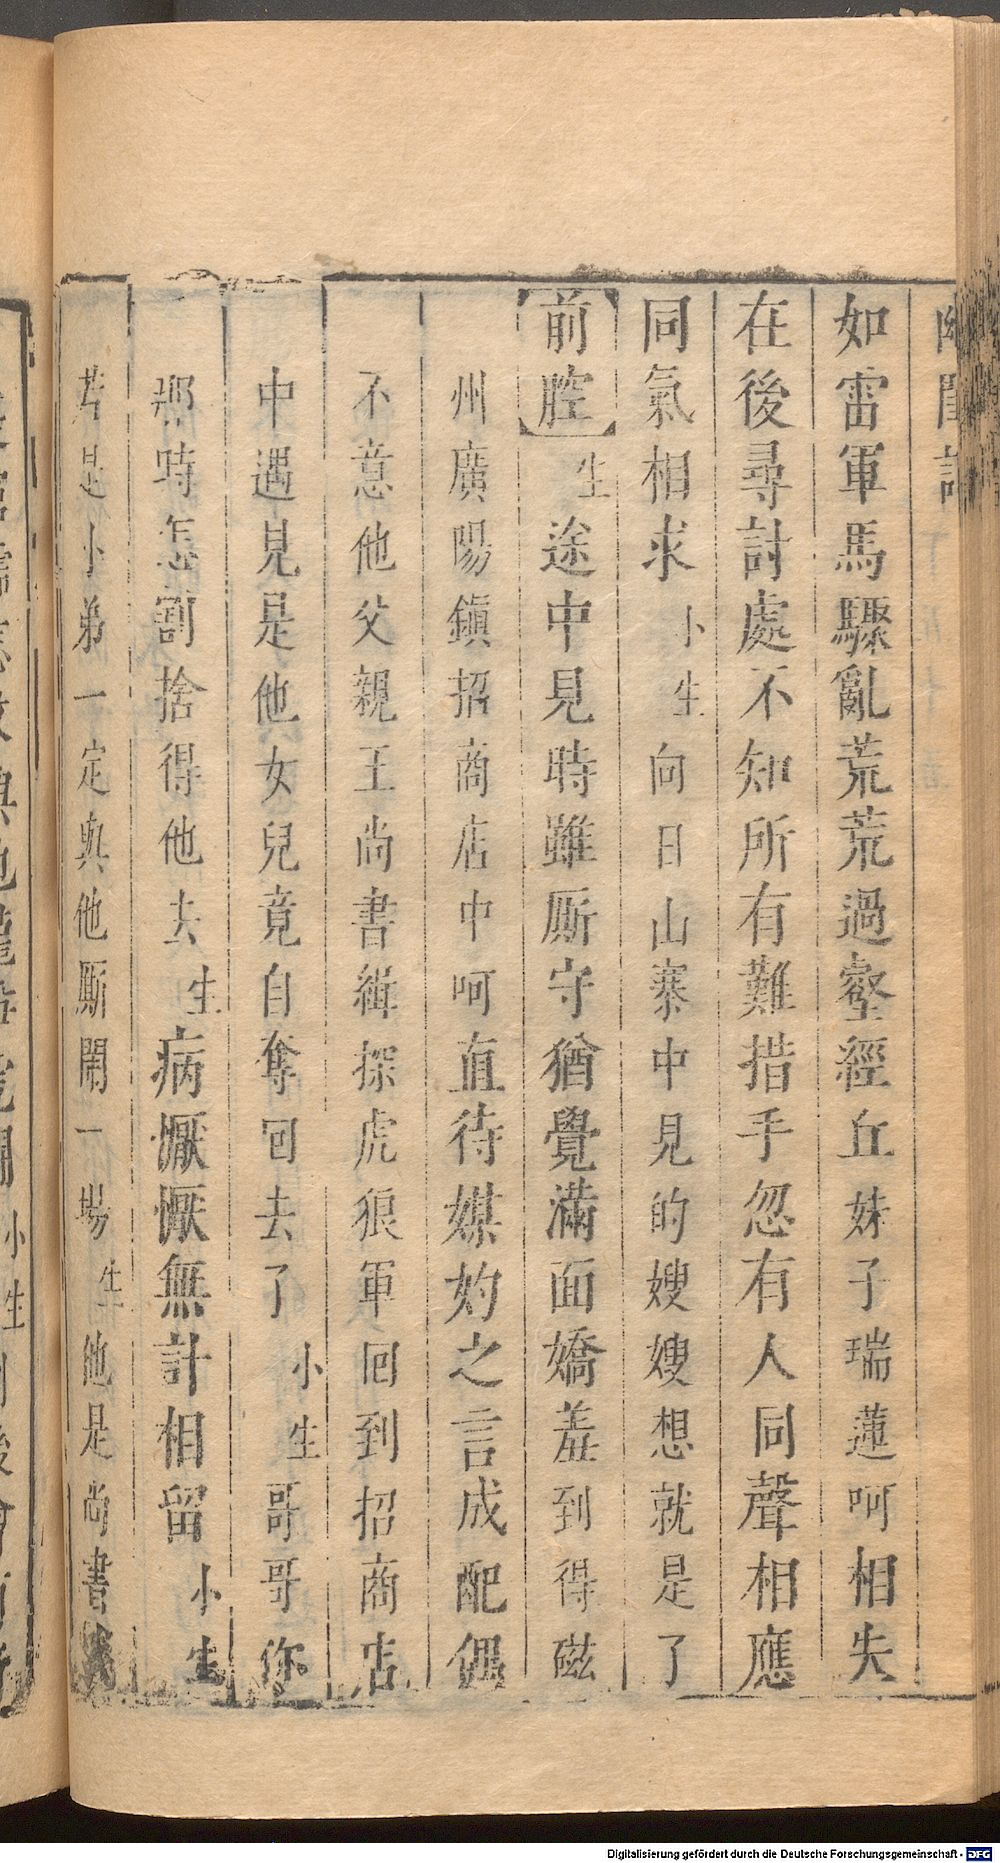 幽閨記
如雷軍馬驟亂荒荒過壑經丘妹子瑞蓮呵相失
在後尋討處不知所有難措手忽有人同聲相應
同氣相求小生向日山寨中見的嫂嫂想就是了
前腔生途中見時雖厮守猶覺滿面嬌羞到得磁
州廣陽鎮招商店中呵直待媒妁之言成配偶
不意他父親王尚書緝探虎狼軍囘到招商店
中遇見是他女兒竟自奪囘去了小生哥哥你
那時怎割捨得他去生病懨懨無計相留小生
若是小弟一定與他厮鬧一場生他是尚書
小生
Digitalisierung gefördert durch die Deutsche Forschungsgemeinschaft - DFG